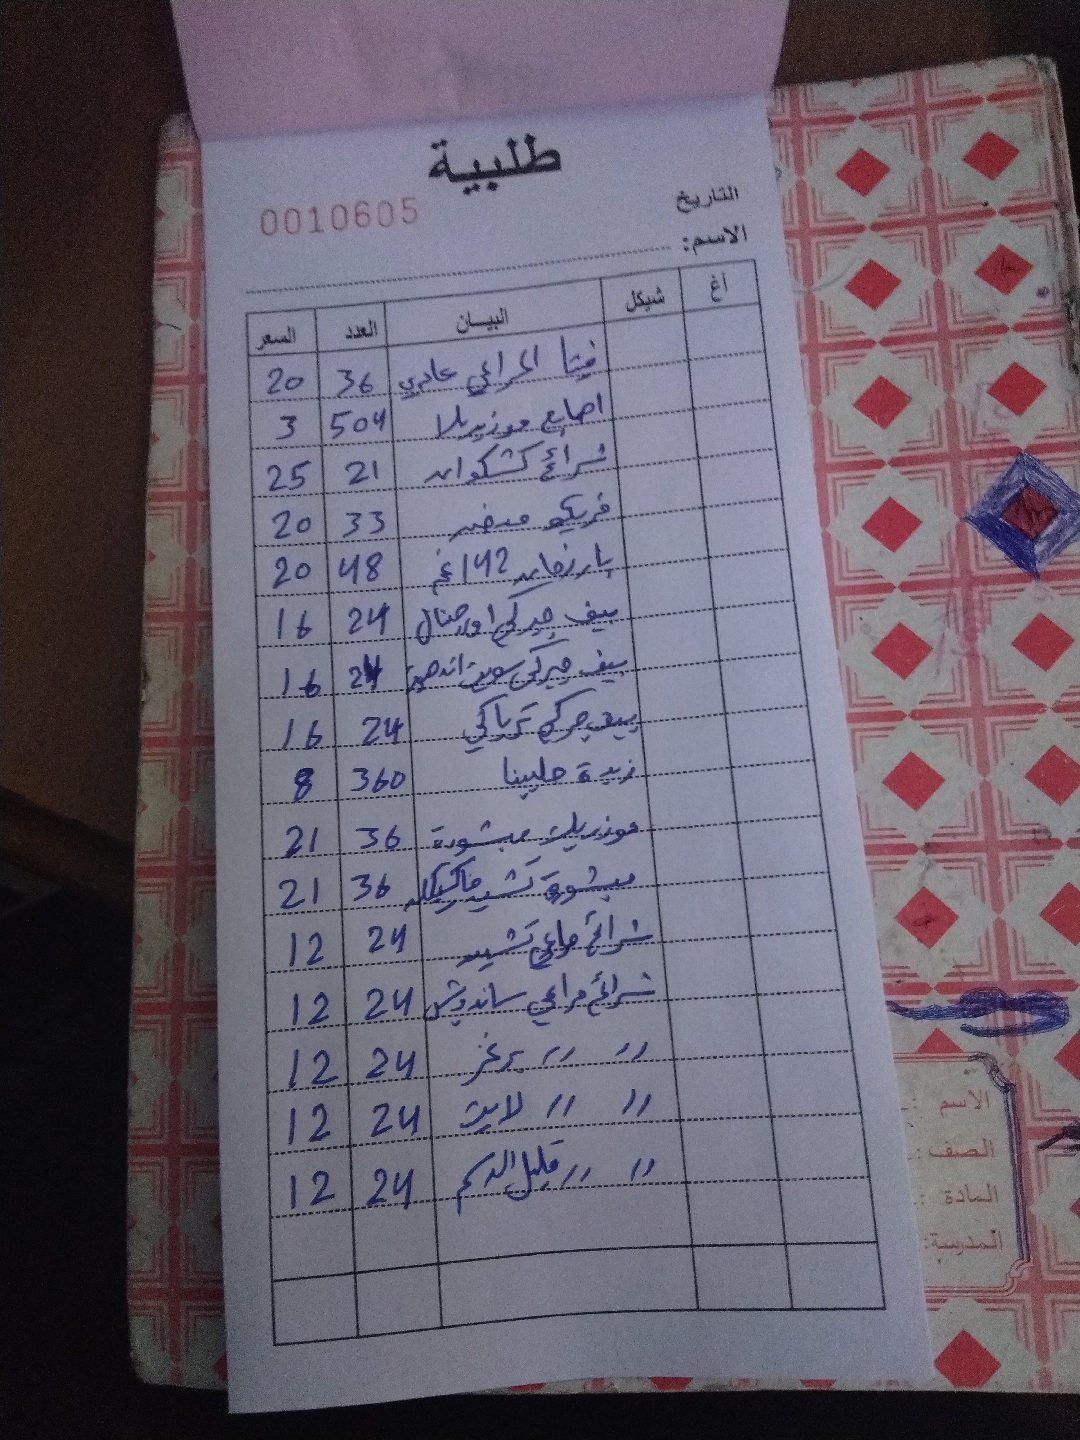 طلبية
0010605
التاريخ
الاسم:
أغ شيكل البيـــان العدد السعر
فيتا المراعي عادي 36 20
اصابع موزيريلا 504 3
شرائح كشكوان 21 25
فريكو مدخن 33 20
بارزمان 142غم 48 20
بيف جيركي اورجنال 24 16
بيف جيركي سويت اند هوت 24 16
بيف جركي ترياكي 24 16
زبدة حليبنا 360 8
موزريلا مبشورة 36 21
مبشورة تشيدر مكسيكان 36 21
شرائح مراعي تشيدر 24 12
شرائح مراعي ساندوتش 24 12
〃 〃 برغر 24 12
〃 〃 لايت 24 12
〃 〃 قليل الدسم 24 12
الاسم :
الصف :
المادة :
المدرسة: